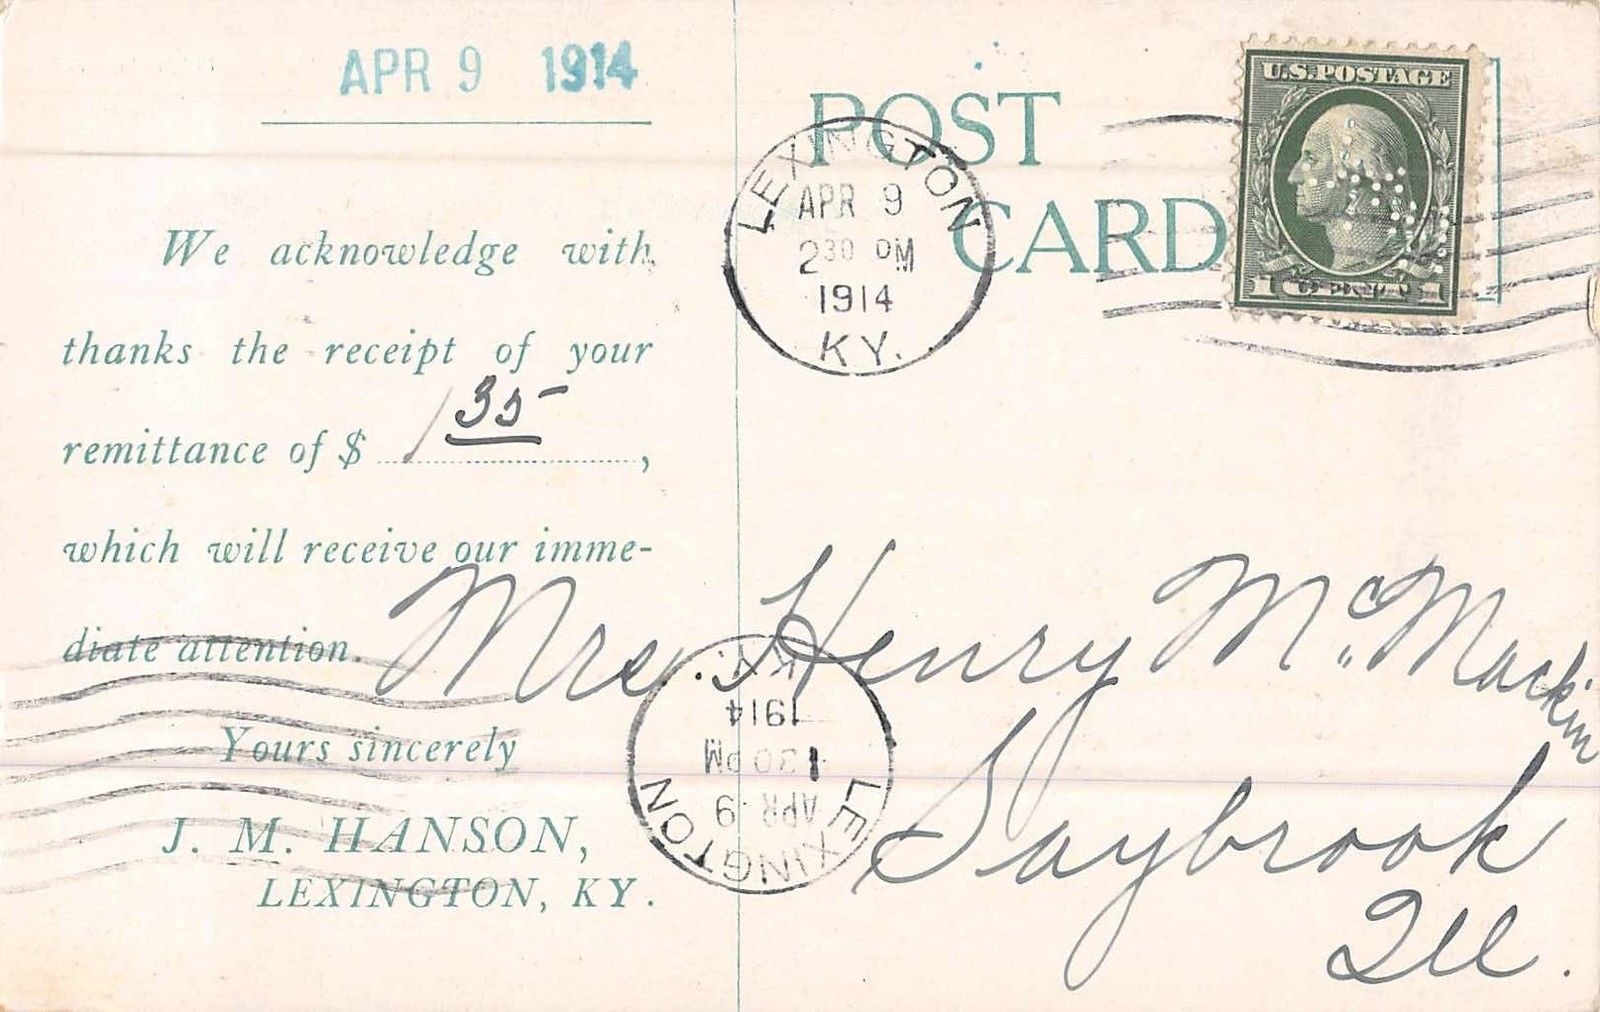 APR 9 1914
We acknowledge with
thanks the receipt of your
remittance of $ 1 35,
which will receive our imme-
diate attention.
Yours sincerely
J. M. HANSON,
LEXINGTON, KY.
POST
CARD
LEXINGTON
APR 9
2 30 PM
1914
KY.
U.S. POSTAGE
Mrs. Henry McMackin
Saybrook
Ill.
LEXINGTON
APR 9
1 30 PM
1914
KY.